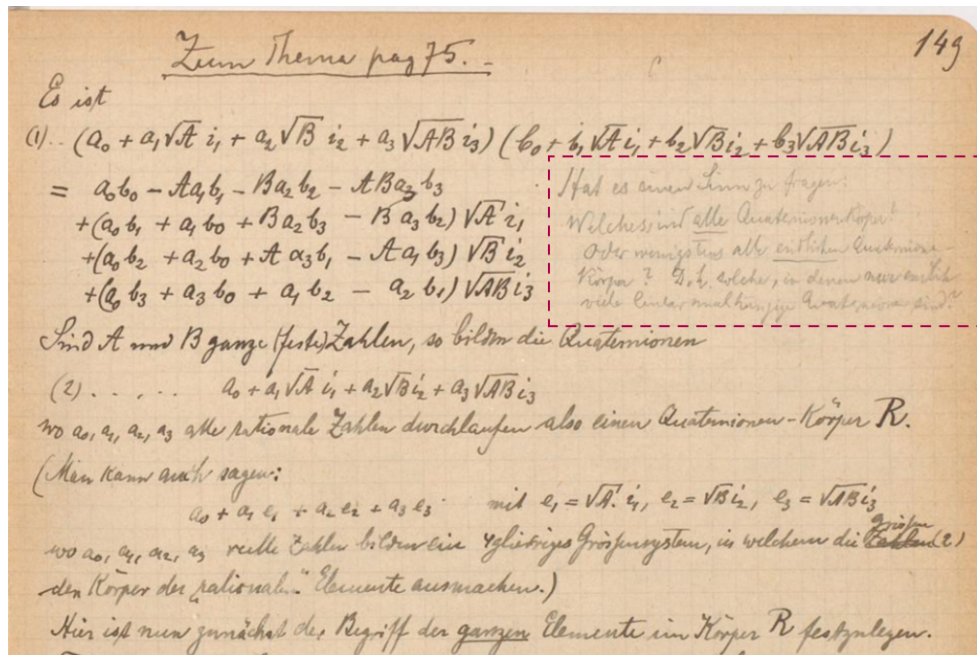 149
Zum Thema pag 75.
Es ist
(1).. (a₀ + a₁√A i₁ + a₂√B i₂ + a₃√AB i₃) (b₀ + b₁√A i₁ + b₂√B i₂ + b₃√AB i₃)
= a₀b₀ - Aa₁b₁ - Ba₂b₂ - ABa₃b₃
+(a₀b₁ + a₁b₀ + Ba₂b₃ - Ba₃b₂) √A i₁
+(a₀b₂ + a₂b₀ + Aa₃b₁ - Aa₁b₃) √B i₂
+(a₀b₃ + a₃b₀ + a₁b₂ - a₂b₁) √AB i₃
Hat es einen Sinn zu fragen:
Welches sind alle Quaternionenkörper?
Oder wenigstens alle endlichen Quaternionen-
Körper? D.h. solche, in denen nur endlich
viele linear unabhängige Quaternionen sind?
Sind A und B ganze (feste) Zahlen, so bilden die Quaternionen
(2) . . . . . a₀ + a₁√A i₁ + a₂√B i₂ + a₃√AB i₃
wo a₀, a₁, a₂, a₃ alle rationale Zahlen durchlaufen also einen Quaternionen-Körper R.
(Man kann auch sagen:
a₀ + a₁e₁ + a₂e₂ + a₃e₃ mit e₁ = √A. i₁, e₂ = √B i₂, e₃ = √AB i₃
wo a₀, a₁, a₂, a₃ reelle Zahlen bilden ein 4gliedriges Grössensystem, in welchem die Grössen (2)
den Körper der "rationalen" Elemente ausmachen.)
Hier ist nun zunächst der Begriff der ganzen Elemente im Körper R festzulegen.